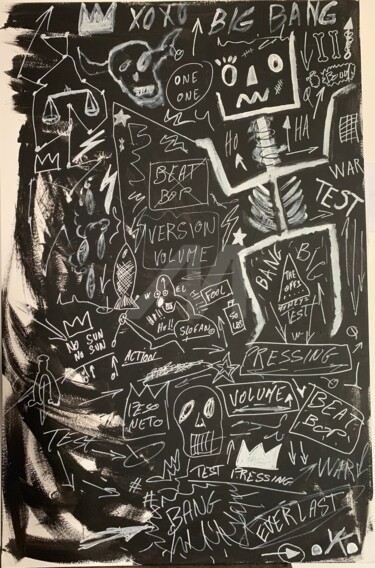 XOXO
BIG BANG
ONE
ONE
HO
HA
WAR
TEST
BEAT
BOP
VERSION
VOLUME
BANG
BIG
THE
FOOL
Ho!!
NO SUN
NO SUN
ACTION
PRESSING
VOLUME
BEAT
BOP
TEST
TEST PRESSING
WAR
#
#
BANG
EVERLAST